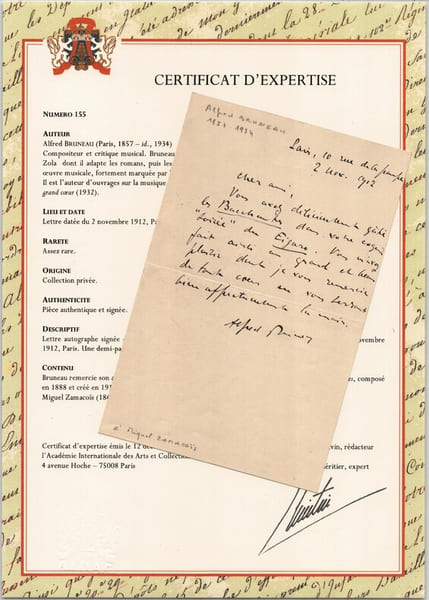 CERTIFICAT D'EXPERTISE
NUMERO 155
AUTEUR
Alfred BRUNEAU (Paris, 1857 – id., 1934)
Compositeur et critique musical. Bruneau
Zola dont il adapte les romans, puis les
œuvre musicale, fortement marquée par
Il est l'auteur d'ouvrages sur la musique
grand cœur (1932).
LIEU ET DATE
Lettre datée du 2 novembre 1912, P
RARETE
Assez rare.
ORIGINE
Collection privée.
AUTHENTICITE
Pièce authentique et signée.
DESCRIPTIF
Lettre autographe signée
1912, Paris. Une demi-pa
novembre
CONTENU
Bureau remercie son
en 1888 et créé en 19
Miguel Zamacoïs (18
es, composé
Certificat d'expertise émis le 12
l'Académie Internationale des Arts et Collection
4 avenue Hoche – 75008 Paris
vin, rédacteur
éritier, expert
Alfred BRUNEAU
1857 1934
Paris, 10 rue de la pompe
2 nov. 1912
cher ami,
Vous avez délicieusement gâté
les Bacchantes dans votre
"soirée" du Figaro. Vous m'avez
fait ainsi un grand et beau
plaisir dont je vous remercie
de tout cœur en vous serrant
bien affectueusement la main.
Alfred Bruneau
à Miguel Zamacoïs